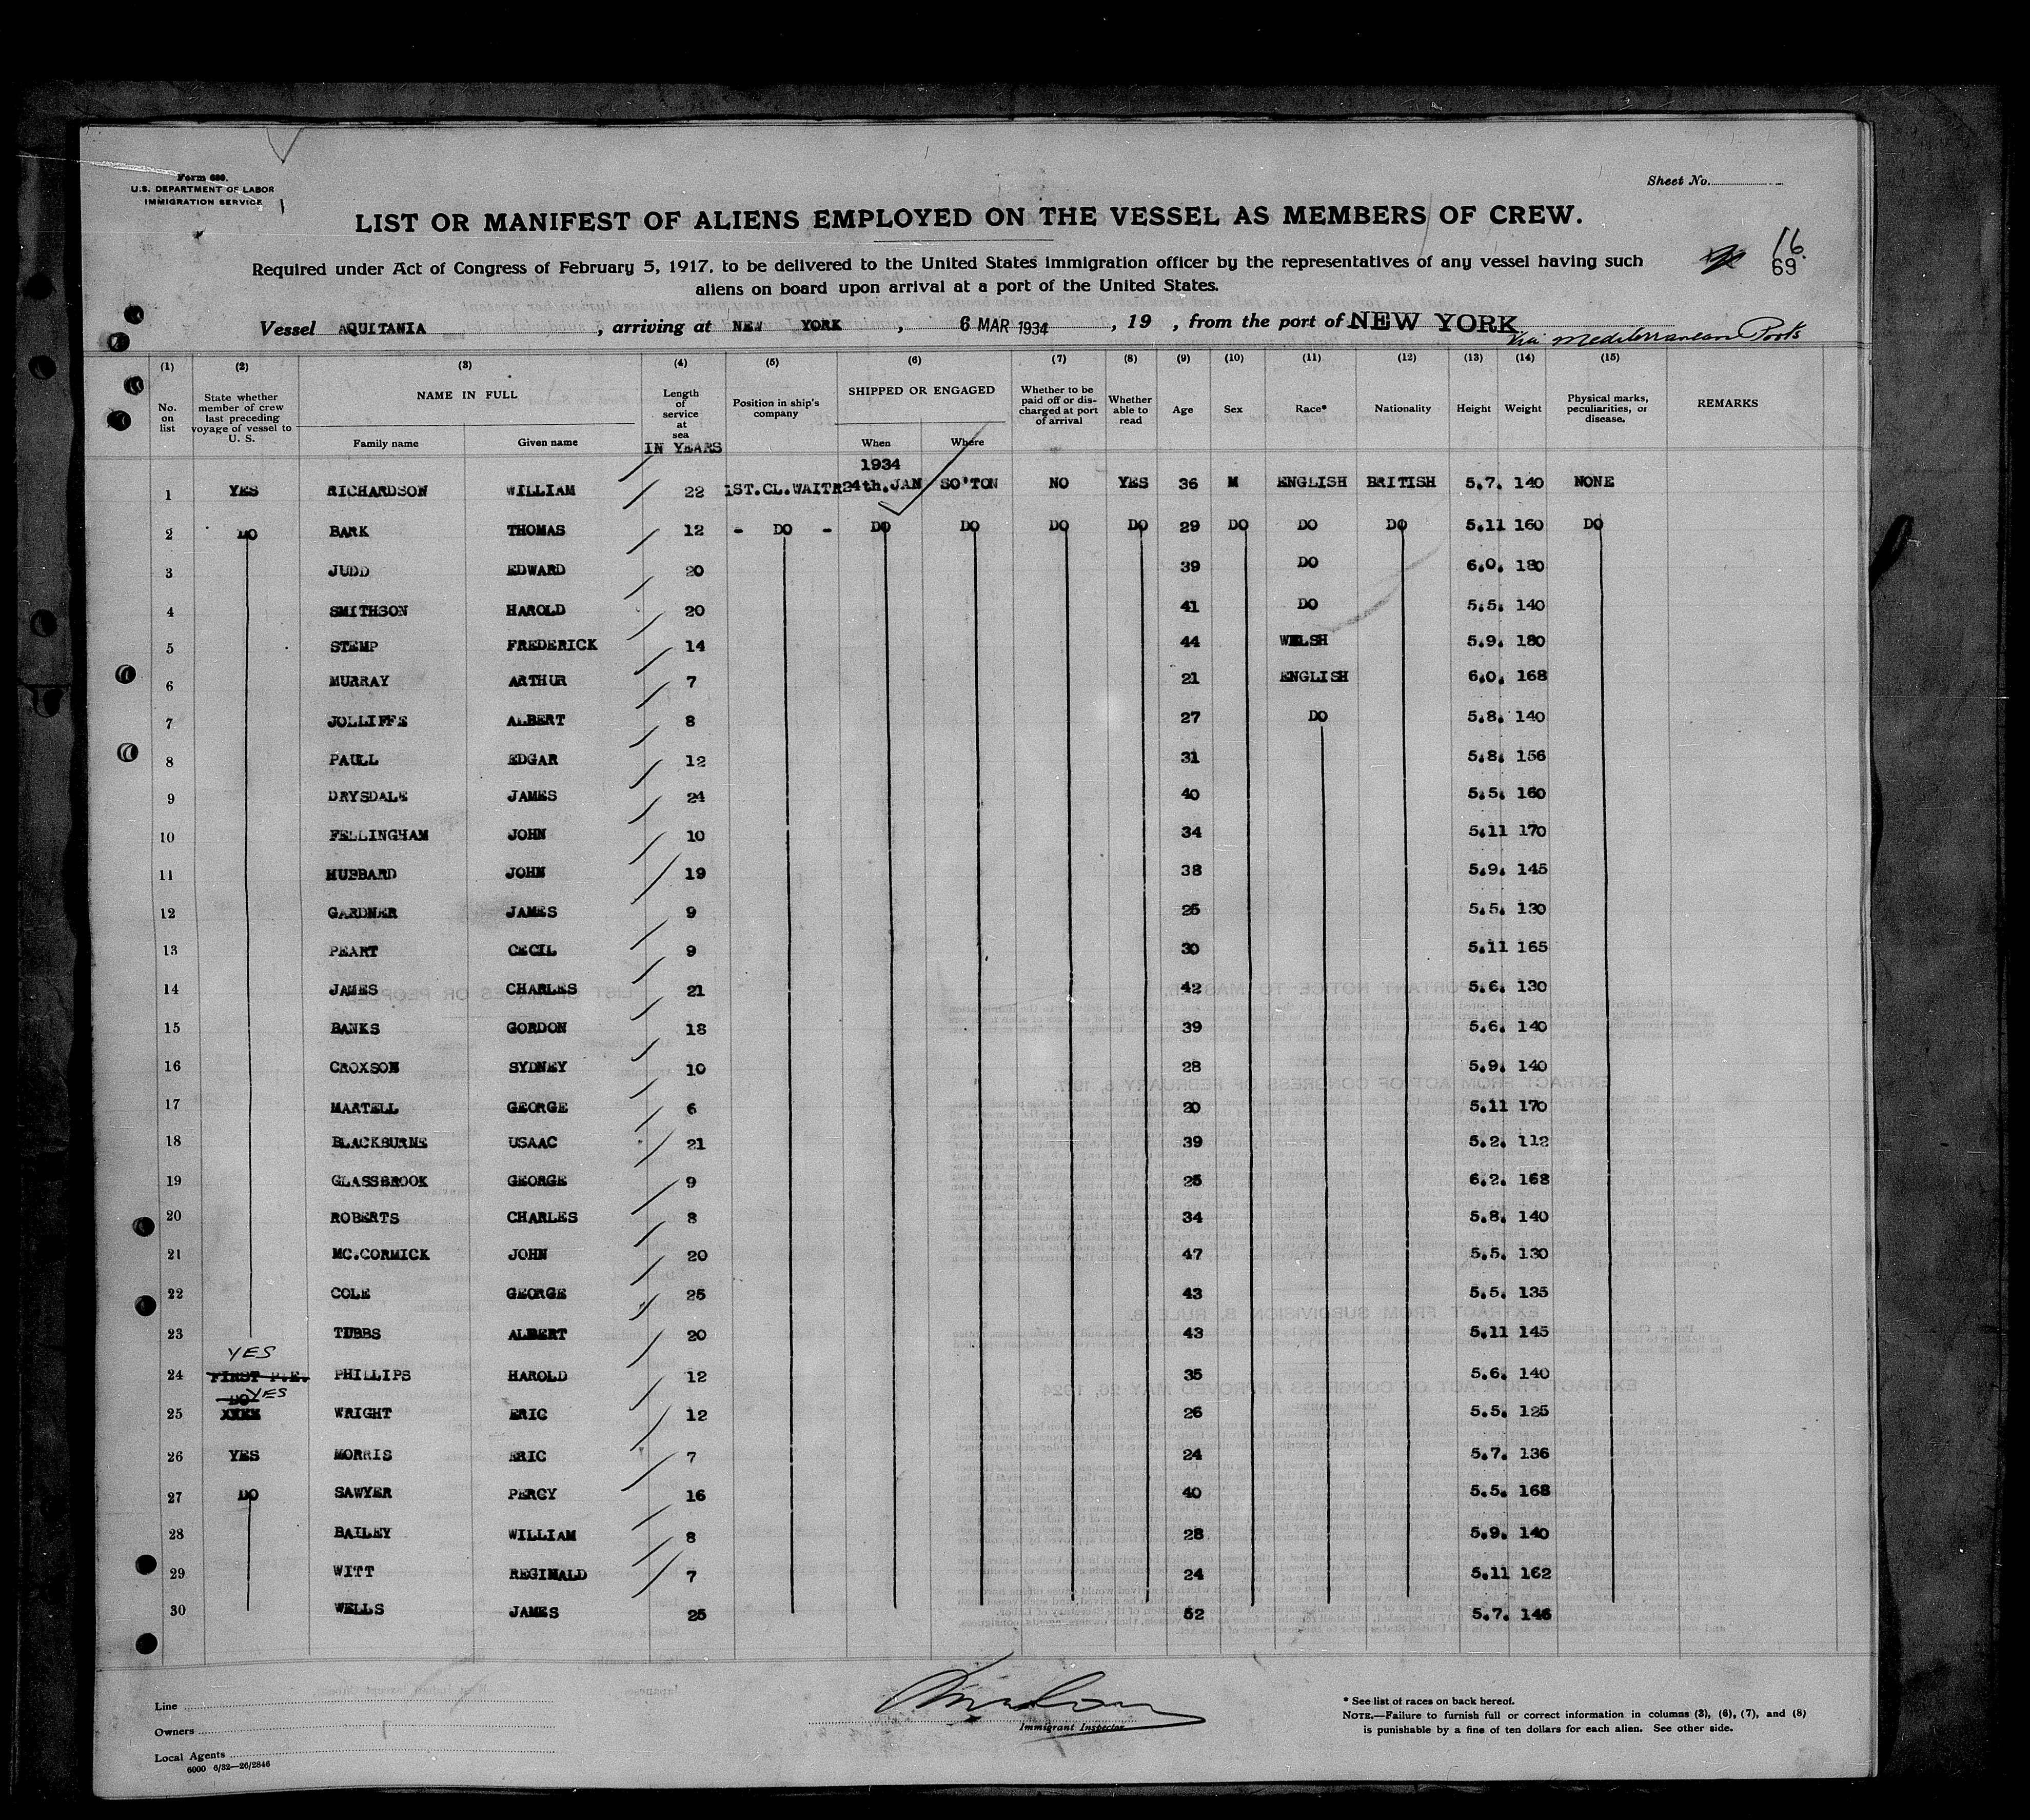 Form 680.
U.S. DEPARTMENT OF LABOR
IMMIGRATION SERVICE
Sheet No.
LIST OR MANIFEST OF ALIENS EMPLOYED ON THE VESSEL AS MEMBERS OF CREW.
16.
69
Required under Act of Congress of February 5, 1917, to be delivered to the United States immigration officer by the representatives of any vessel having such
aliens on board upon arrival at a port of the United States.
Vessel AQUITANIA, arriving at NEW YORK, 6 MAR 1934, 19 , from the port of NEW YORK
Via Mediterranean Ports
(1) (2) (3) (4) (5) (6) (7) (8) (9) (10) (11) (12) (13) (14) (15)
No. on list State whether member of crew last preceding voyage of vessel to U. S. NAME IN FULL Family name Given name Length of service at sea IN YEARS Position in ship's company SHIPPED OR ENGAGED When Where Whether to be paid off or discharged at port of arrival Whether able to read Age Sex Race* Nationality Height Weight Physical marks, peculiarities, or disease. REMARKS
1934
1 YES RICHARDSON WILLIAM 22 1ST.CL.WAITR 24th.JAN SO'TON NO YES 36 M ENGLISH BRITISH 5.7. 140 NONE
2 DO BARK THOMAS 12 - DO - DO DO DO DO 29 DO DO DO 5.11 160 DO
3 JUDD EDWARD 20 39 DO 6.0. 180
4 SMITHSON HAROLD 20 41 DO 5.5. 140
5 STEMP FREDERICK 14 44 WELSH 5.9. 180
6 MURRAY ARTHUR 7 21 ENGLISH 6.0. 168
7 JOLLIFFE ALBERT 8 27 DO 5.8. 140
8 PAULL EDGAR 12 31 5.8. 156
9 DRYSDALE JAMES 24 40 5.5. 160
10 FELLINGHAM JOHN 10 34 5.11 170
11 HUBBARD JOHN 19 38 5.9. 145
12 GARDNER JAMES 9 25 5.5. 130
13 PEART CECIL 9 30 5.11 165
14 JAMES CHARLES 21 42 5.6. 130
15 BANKS GORDON 18 39 5.6. 140
16 CROXSON SYDNEY 10 28 5.9. 140
17 MARTELL GEORGE 6 20 5.11 170
18 BLACKBURNE USAAC 21 39 5.2. 112
19 GLASSBROOK GEORGE 9 25 6.2. 168
20 ROBERTS CHARLES 8 34 5.8. 140
21 MC.CORMICK JOHN 20 47 5.5. 130
22 COLE GEORGE 25 43 5.5. 135
23 TUBBS ALBERT 20 43 5.11 145
YES
24 FIRST P.E. PHILLIPS HAROLD 12 35 5.6. 140
DO YES
25 XXXX WRIGHT ERIC 12 26 5.5. 125
26 YES MORRIS ERIC 7 24 5.7. 136
27 DO SAWYER PERCY 16 40 5.5. 168
28 BAILEY WILLIAM 8 28 5.9. 140
29 WITT REGINALD 7 24 5.11 162
30 WELLS JAMES 25 52 5.7. 146
Line
Owners
Local Agents
6000 6/32—26/2846
Immigrant Inspector
* See list of races on back hereof.
NOTE.—Failure to furnish full or correct information in columns (3), (6), (7), and (8)
is punishable by a fine of ten dollars for each alien. See other side.